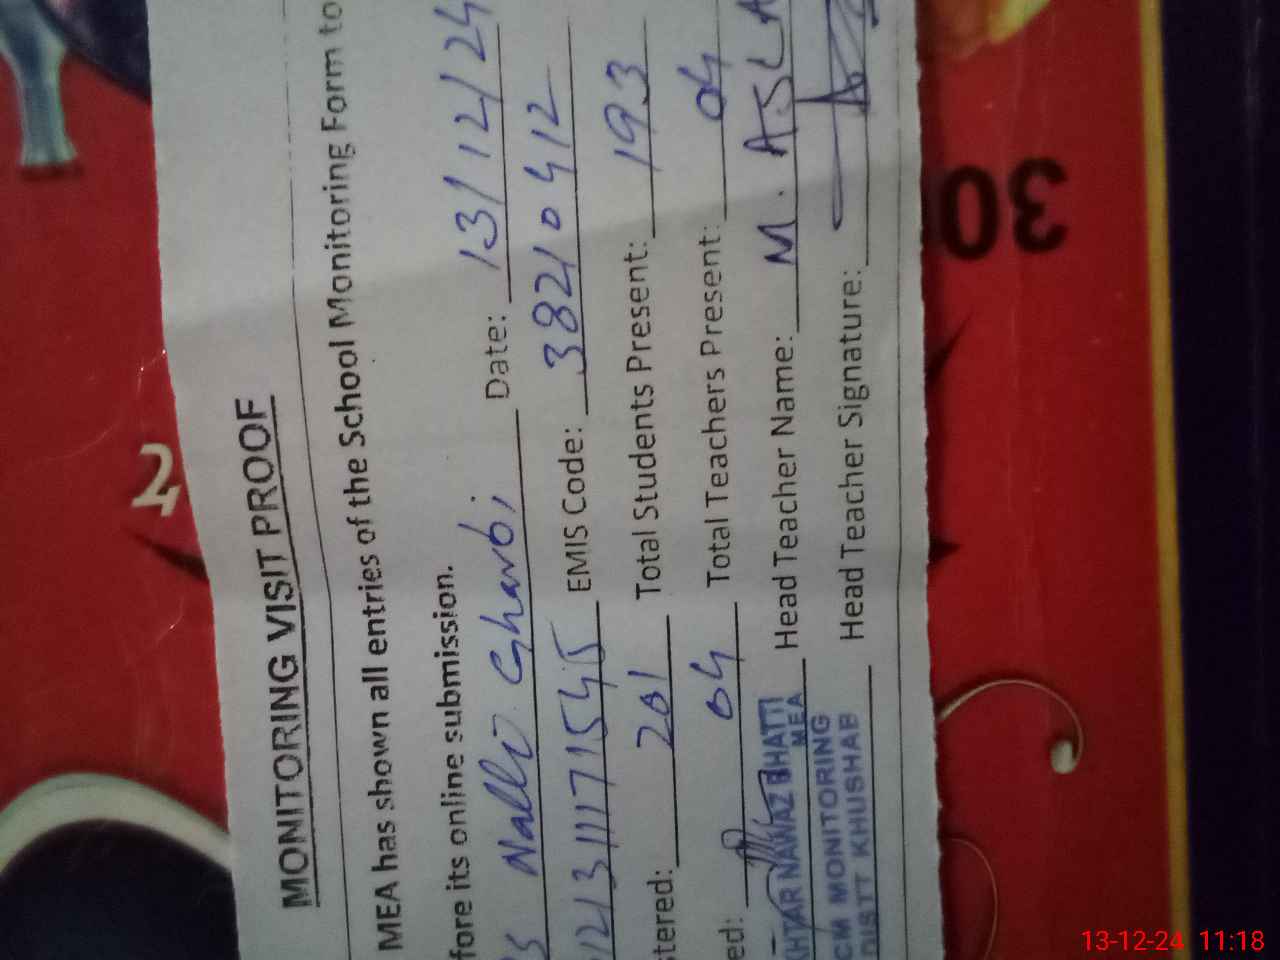 MONITORING VISIT PROOF
MEA has shown all entries of the School Monitoring Form to
fore its online submission.
S Nalli Gharbi Date: 13/12/24
EMIS Code: 38210412
stered: 201 Total Students Present: 193
ed: 04 Total Teachers Present: 04
KHTAR NAWAZ BHATTI Head Teacher Name: M. ASLA
MEA
CM MONITORING Head Teacher Signature:
DISTT KHUSHAB
2
30
13-12-24 11:18